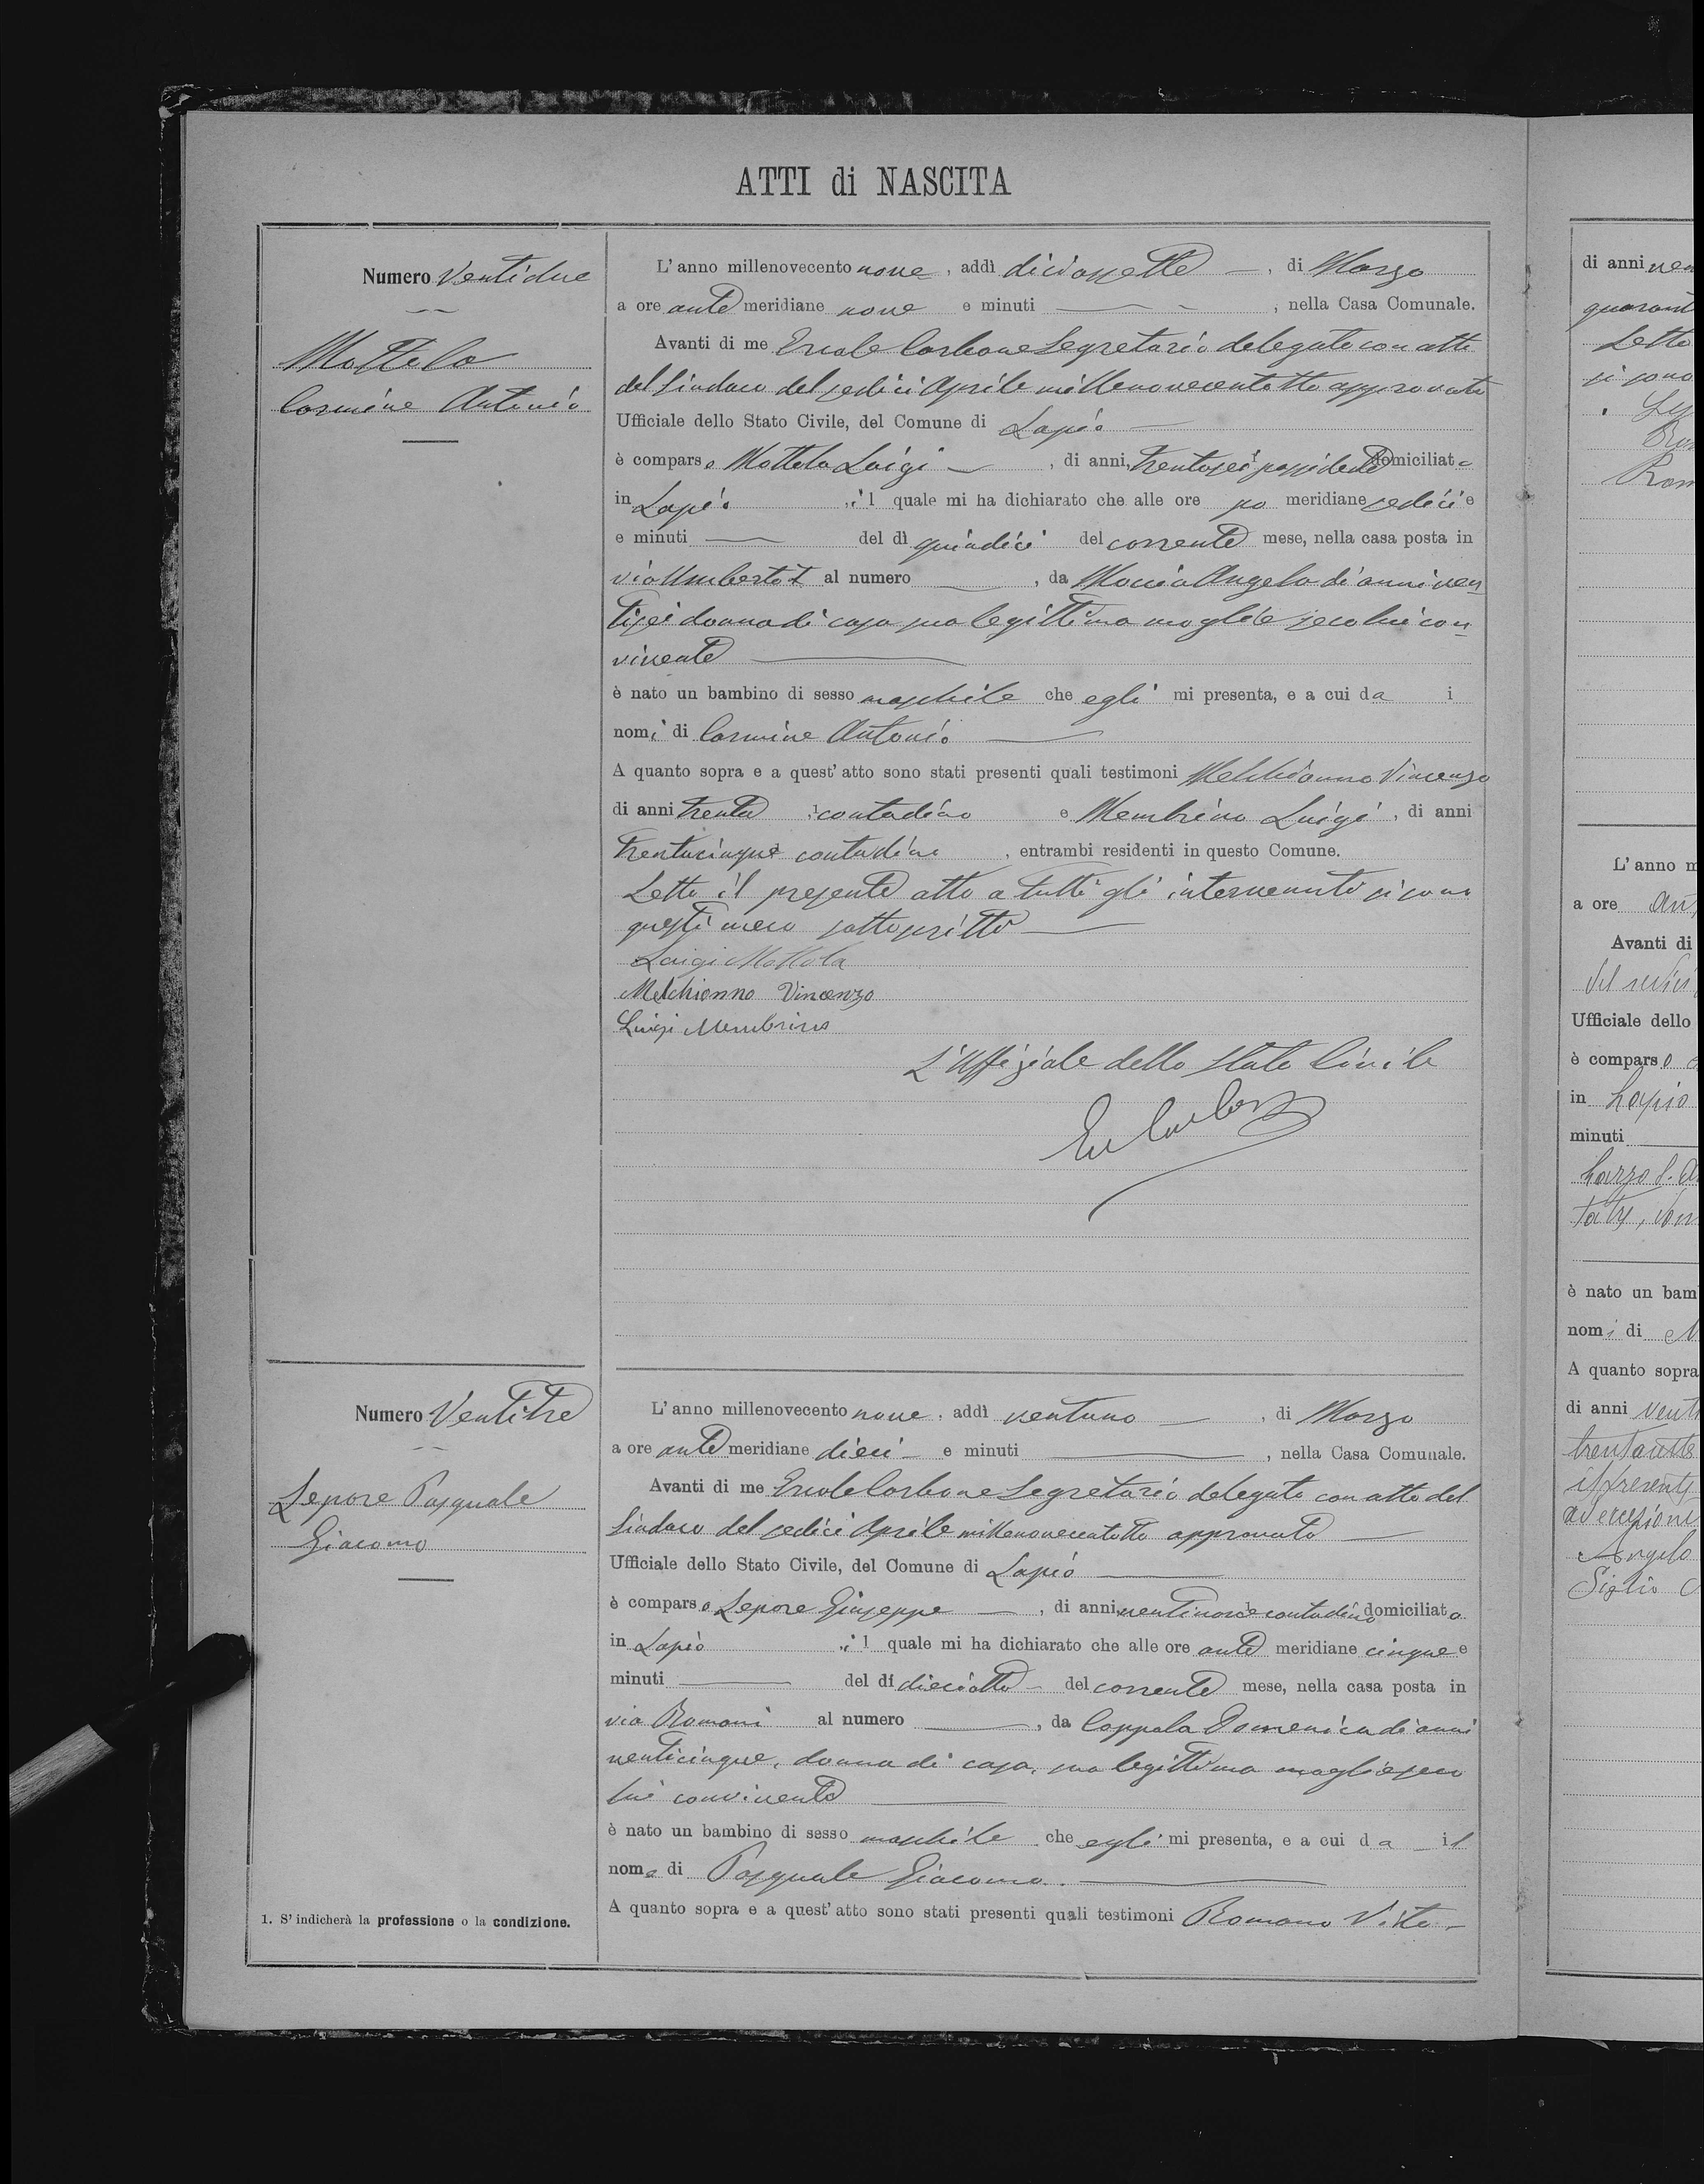 ATTI di NASCITA
Numero Ventidue
Mottola
Carmine Antonio
L'anno millenovecento nove, addì diciassette —, di Marzo
a ore ante meridiane nove e minuti —, nella Casa Comunale.
Avanti di me Ercole Carbone Segretario delegato con atto
del Sindaco del sedici Aprile millenovecentotto approvato
Ufficiale dello Stato Civile, del Comune di Lapio —
è comparso Mottola Luigi —, di anni trentasei possidente domiciliato
in Lapio, il quale mi ha dichiarato che alle ore po meridiane sedici e
e minuti — del dì quindici del corrente mese, nella casa posta in
via Umberto I al numero —, da Maria Angela di anni ven
tisei donna di casa sua legittima moglie seco lui con
vivente —
è nato un bambino di sesso maschile che egli mi presenta, e a cui da i
nomi di Carmine Antonio —
A quanto sopra e a quest' atto sono stati presenti quali testimoni Melchionno Vincenzo
di anni trenta 1 contadino e Membrino Luigi, di anni
trentacinque contadino, entrambi residenti in questo Comune.
Letto il presente atto a tutti gli intervenuti si sono
questi meco sottoscritti —
Luigi Mottola
Melchionno Vincenzo
Luigi Membrino
L'Uffiziale dello Stato Civile
Numero Ventitre
Lepore Pasquale
Giacomo
L'anno millenovecento nove, addì ventuno —, di Marzo
a ore ante meridiane dieci — e minuti —, nella Casa Comunale.
Avanti di me Ercole Carbone Segretario delegato con atto del
Sindaco del sedici Aprile millenovecentotto approvato —
Ufficiale dello Stato Civile, del Comune di Lapio —
è comparso Lepore Giuseppe —, di anni ventinove 1 contadino domiciliato
in Lapio, il quale mi ha dichiarato che alle ore ante meridiane cinque e
minuti — del dì dieciotto — del corrente mese, nella casa posta in
via Romani al numero —, da Coppola Domenica di anni
venticinque, donna di casa, sua legittima moglie seco
lui convivente —
è nato un bambino di sesso maschile che egli mi presenta, e a cui da il
nome di Pasquale Giacomo. —
A quanto sopra e a quest' atto sono stati presenti quali testimoni Romano Vito —
1. S' indicherà la professione o la condizione.
di anni ven
quarant
Letto
si sono
Rom
L' anno m
a ore an
Avanti di
Ufficiale dello
è comparso
in Lapio
minuti
è nato un bam
nomi di
A quanto sopra
di anni vent
ad eccezione
Angelo